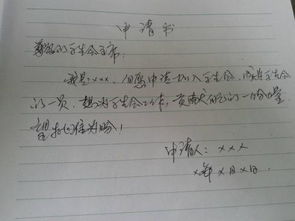 申请书
尊敬的学生会主席:
我是:xxx,自愿申请加入学生会,成为学生会
的一员,想为学生会工作,贡献自己的一份力量,
望批准为盼!
申请人:xxx
x年x月x日.